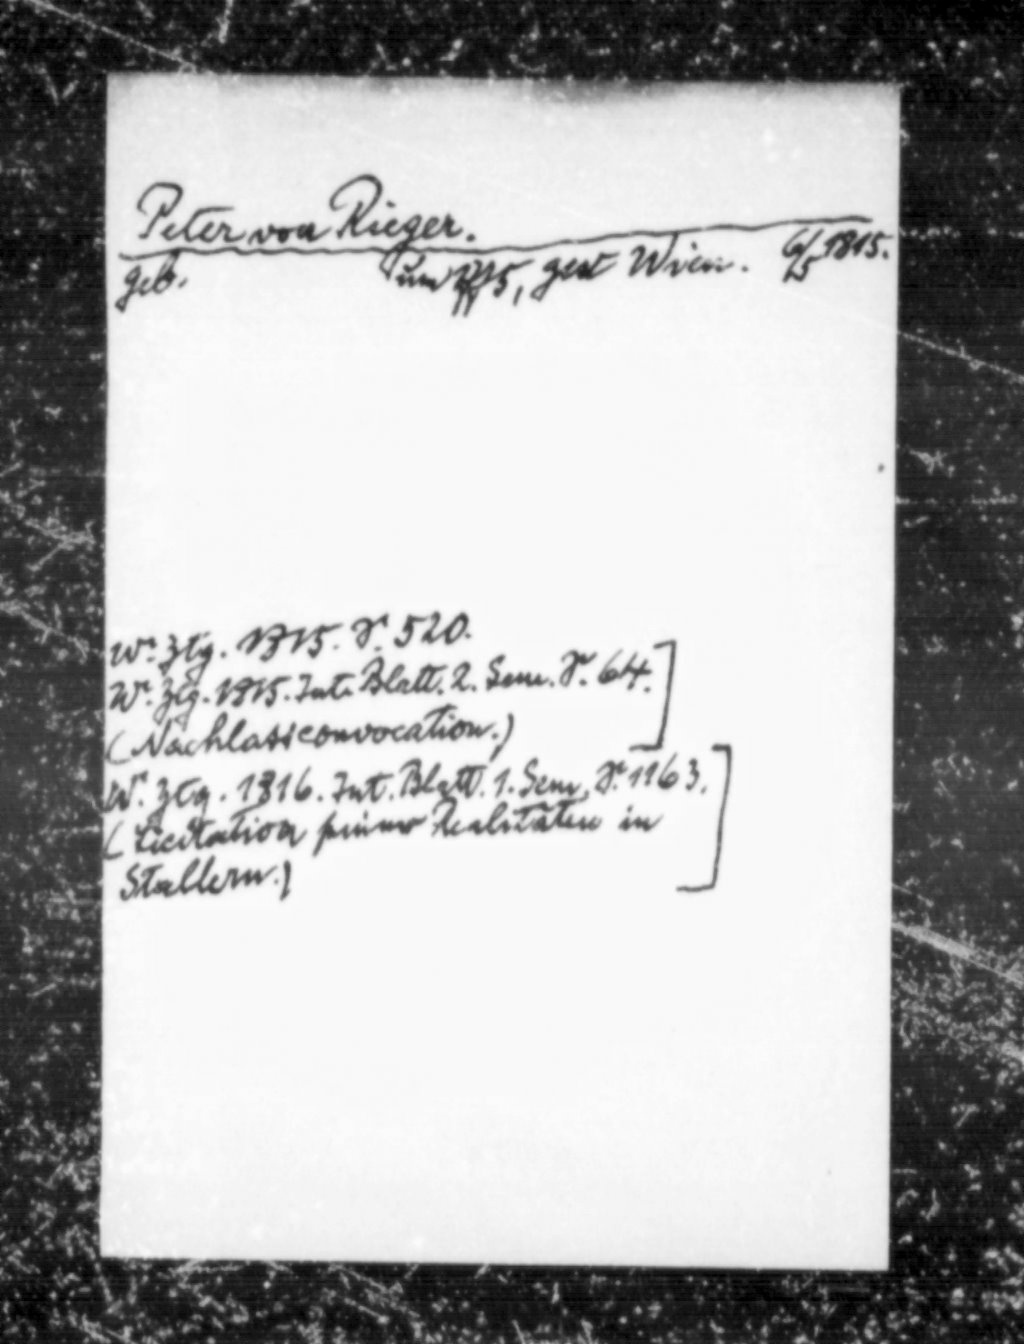 Peter von Rieger.
geb. um 1775, gest Wien. 6/5 1815.
Wr. Ztg. 1815. S. 520.
Wr. Ztg. 1815. Int. Blatt. 2. Sem. S. 64.
(Nachlassconvocation.)
Wr. Ztg. 1816. Int. Blatt. 1. Sem. S. 1163.
(Licitation seiner Realitäten in
Stallern.)